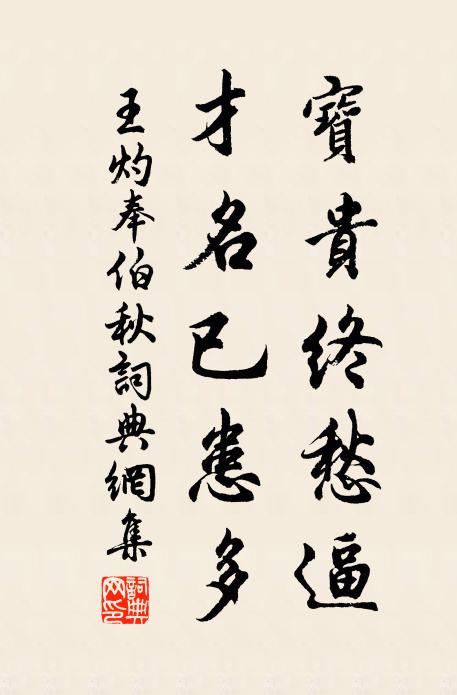 寶貴終愁逼
才名已患多
王灼奉伯秋詞典網集
詞典网印